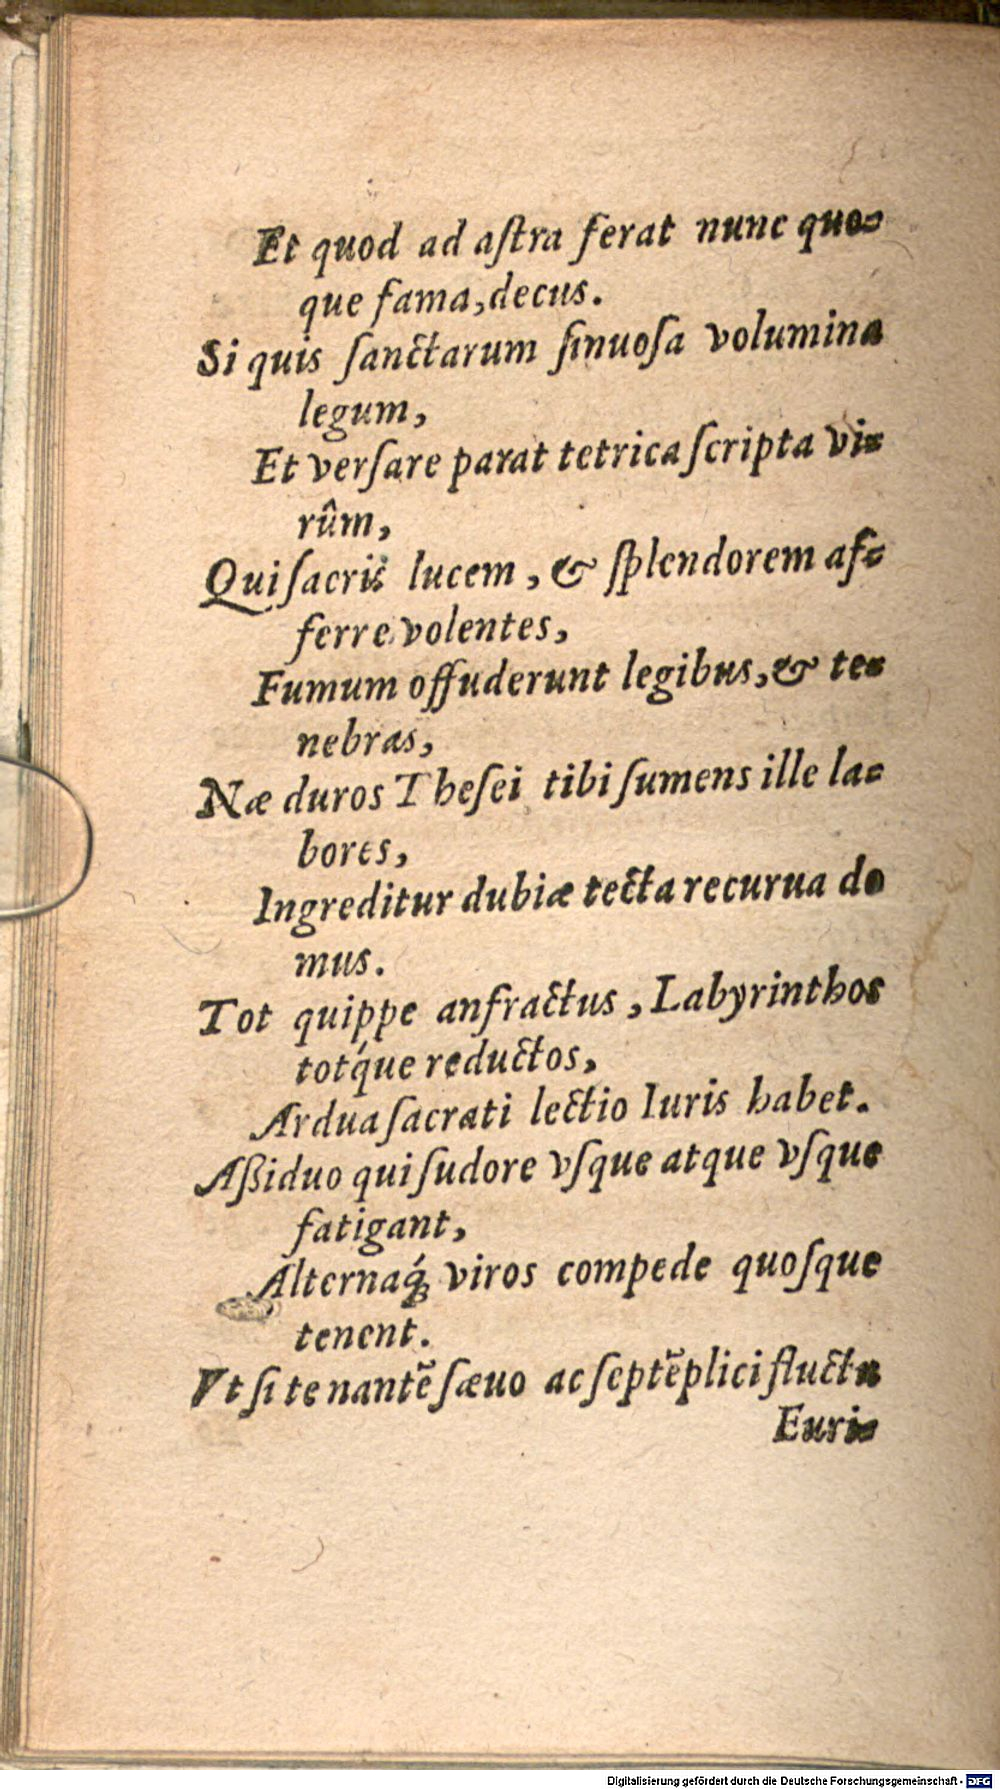 Et quod ad aſtra ferat nunc quo-
que fama, decus.
Si quis ſanctarum ſinuoſa volumina
legum,
Et verſare parat tetrica ſcripta vi-
rûm,
Qui ſacris lucem, & ſplendorem af-
ferre volentes,
Fumum offuderunt legibus, & te-
nebras,
Næ duros Theſei tibi ſumens ille la-
bores,
Ingreditur dubiæ tecta recurua do
mus.
Tot quippe anfractus, Labyrinthos
totq́ue reductos,
Ardua ſacrati lectio Iuris habet.
Aſſiduo qui ſudore vſque atque vſque
fatigant,
Alternaq́; viros compede quoſque
tenent.
Vt ſi te nantẽ ſæuo ac ſeptẽplici fluctu
Euri-
Digitalisierung gefördert durch die Deutsche Forschungsgemeinschaft - DFG